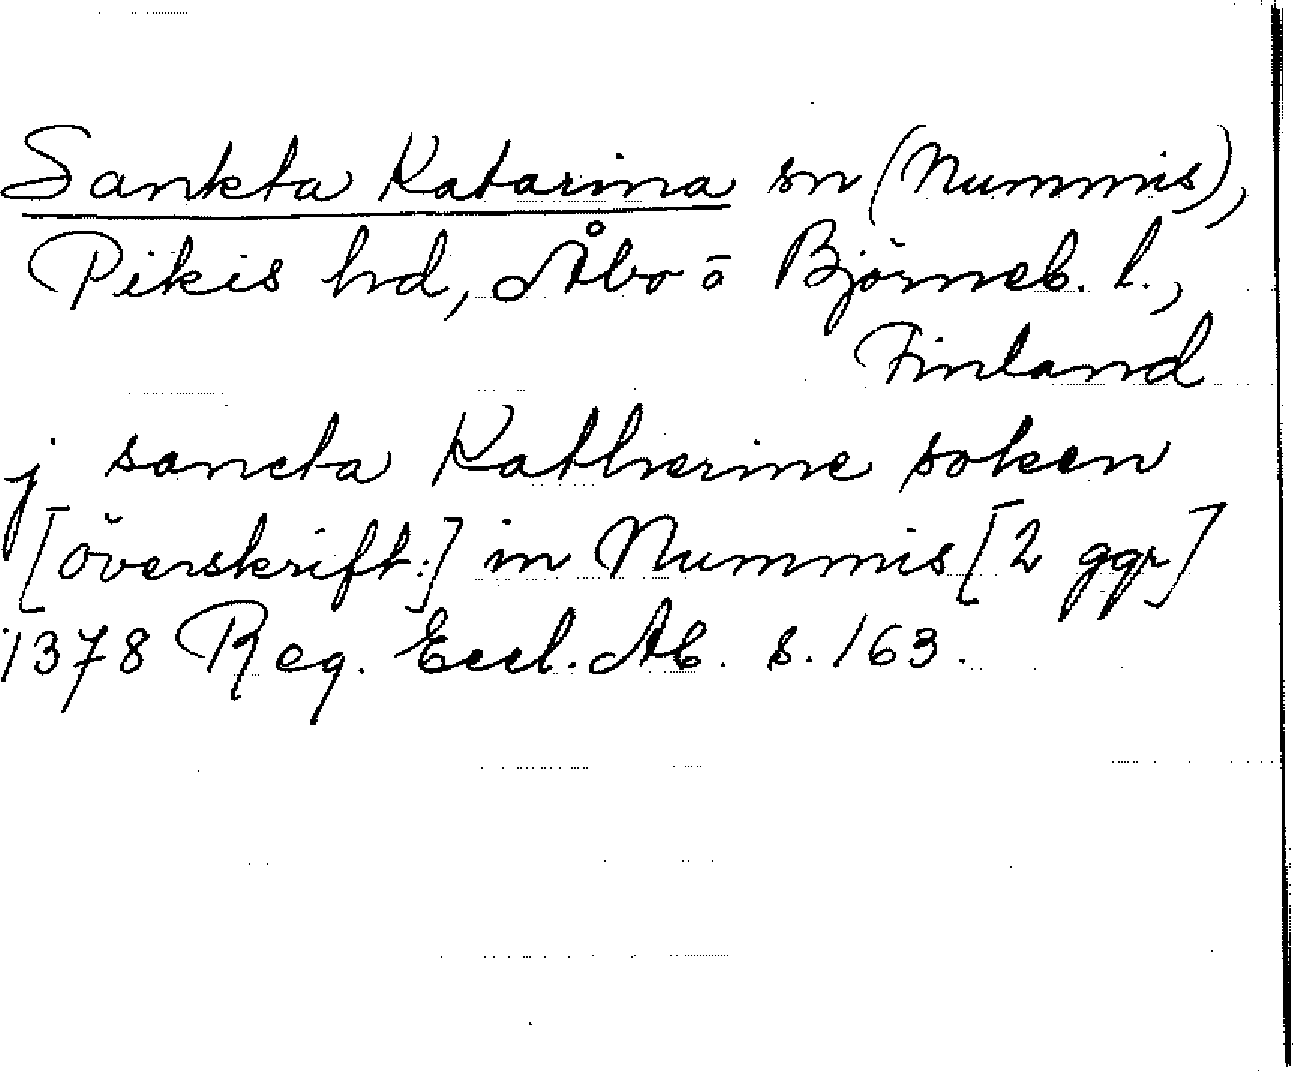 Sankta Katarina sn (Nummis),
Pikis hd, Åbo o Björneb. l.,
Finland
j sancta Katherine soken
[överskrift:] in Nummis [2 ggr]
1378 Reg. Eccl. Ab. s. 163.